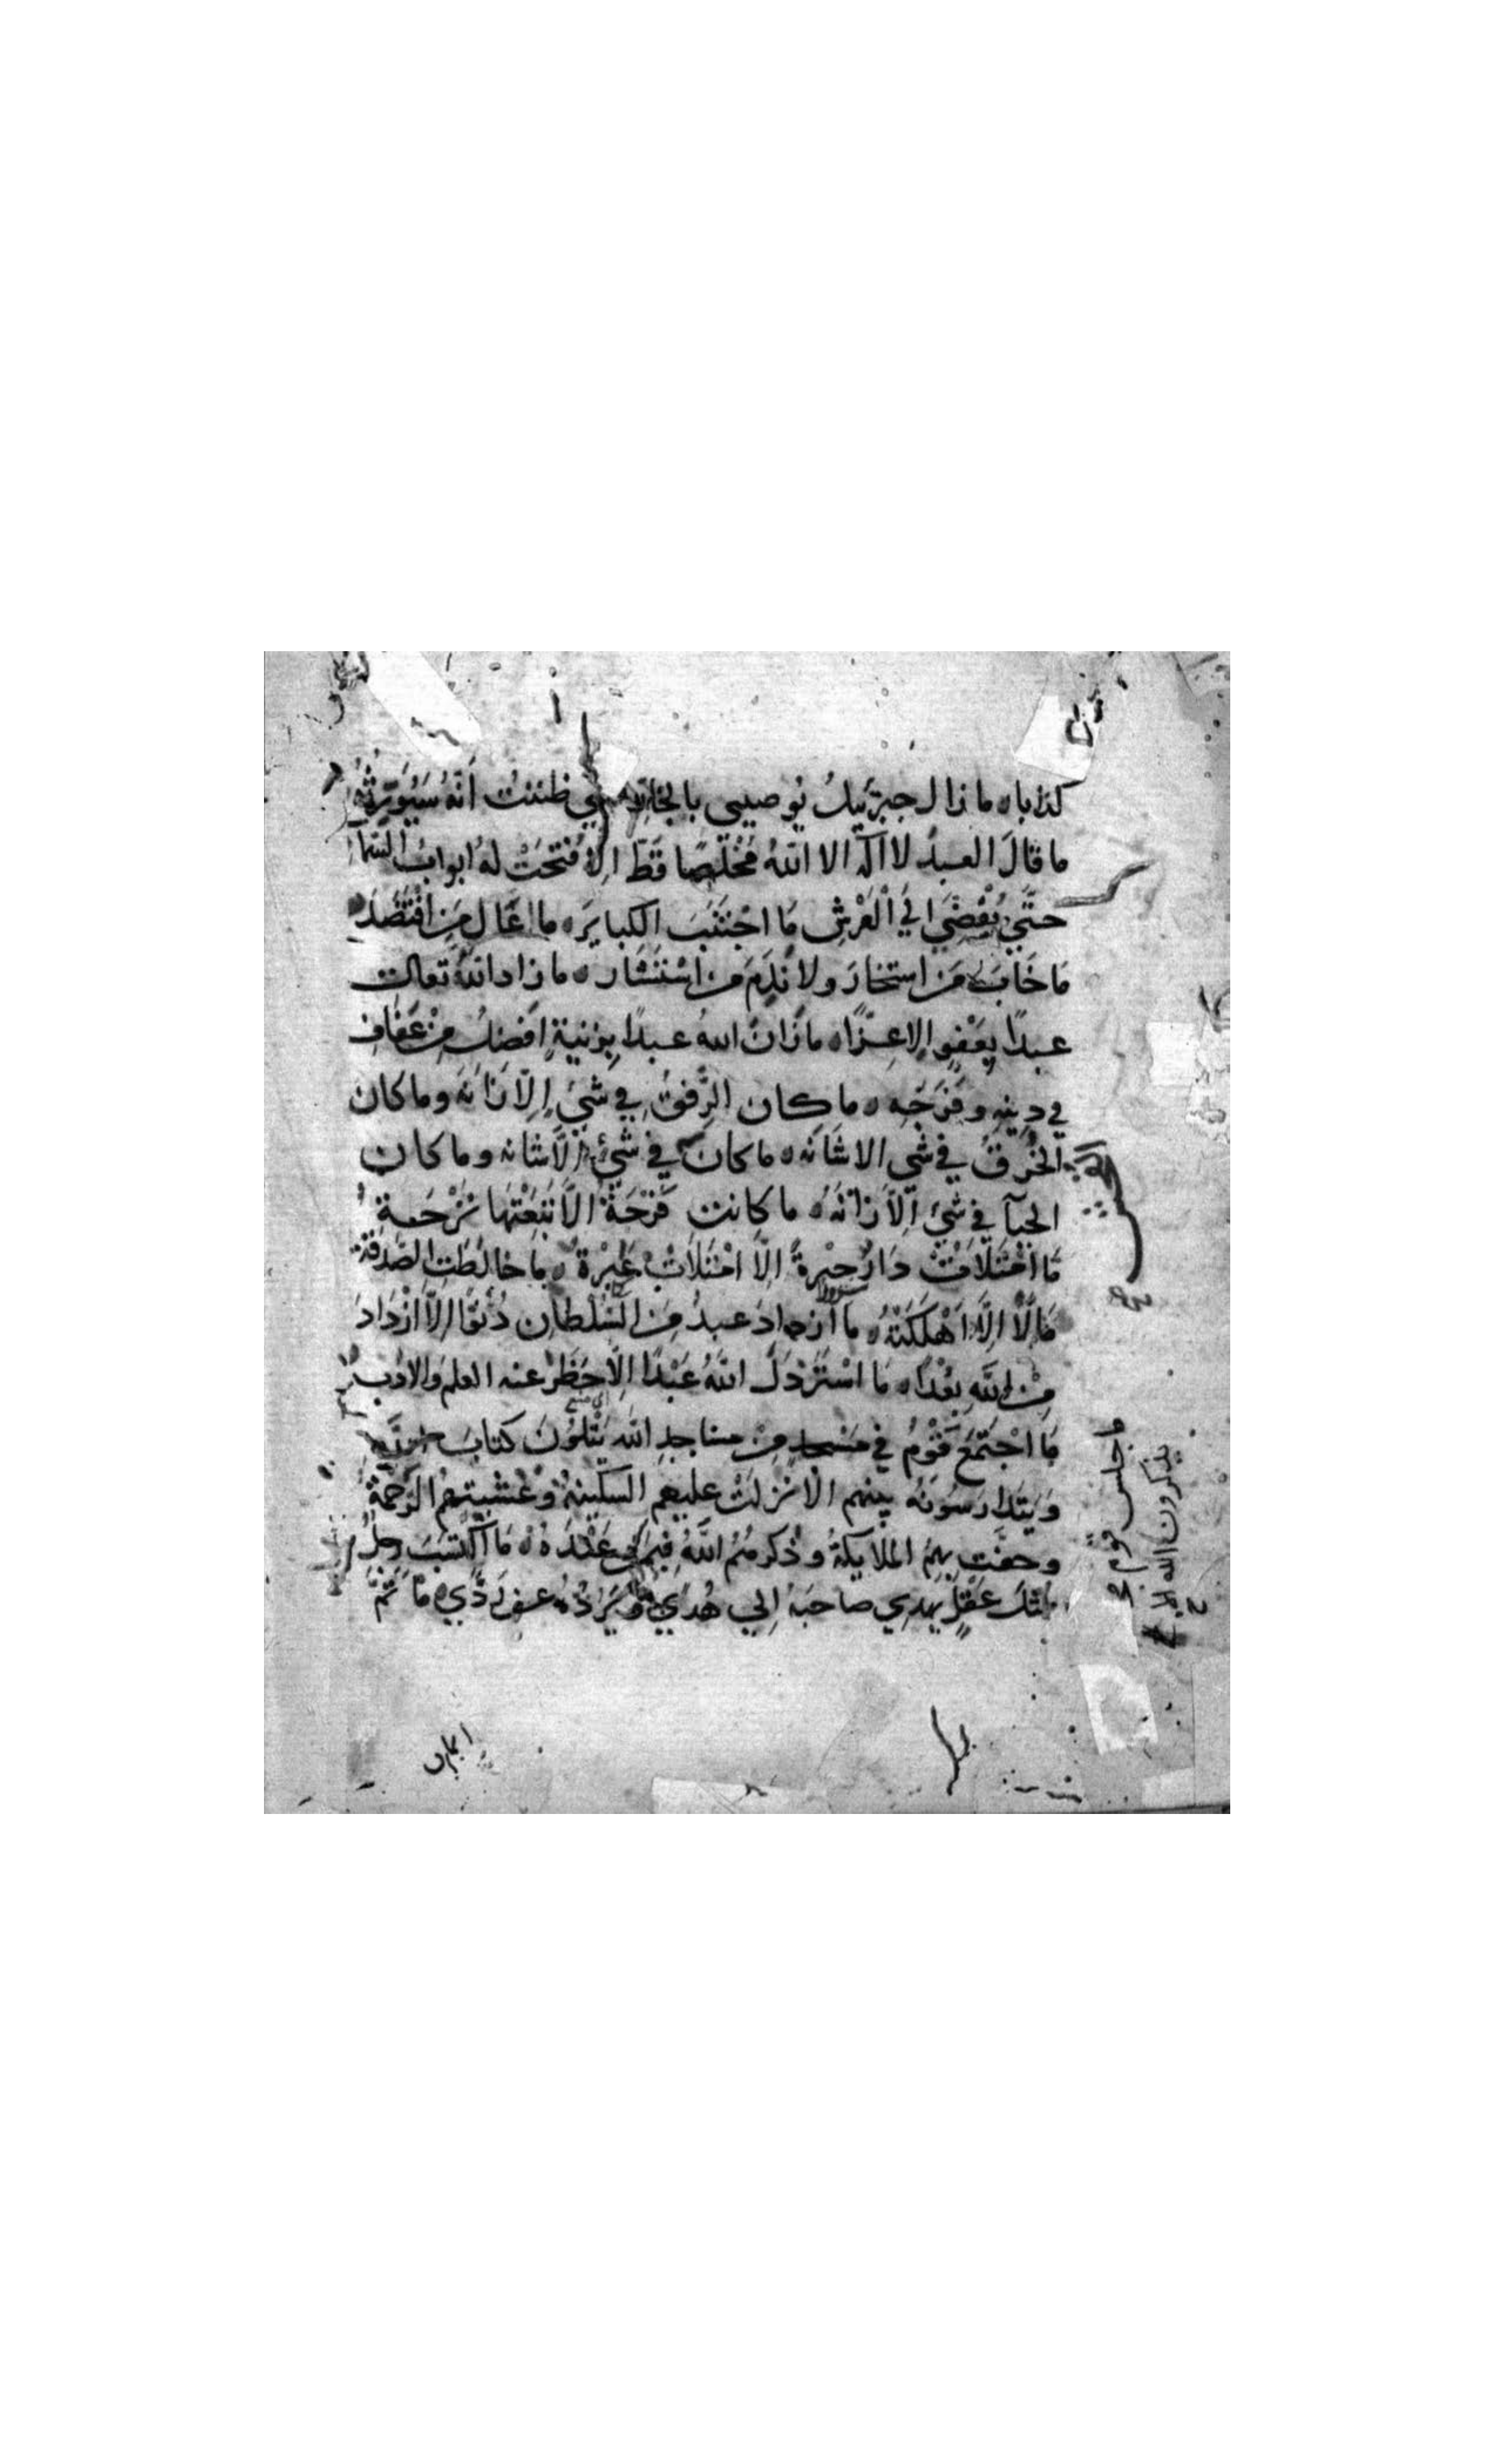 كذابا ه ما زال جبرئيل يوصيني بالجار حتي ظننت انه سيورثه
ما قال العبد لا اله الا الله مخلصا قط الا فتحت له ابواب السماء
حتي يفضي الي العرش ما اجتنب الكباير ه ما عال من اقتصد
ما خاب من استخار ولا ندم من استشار ه ما زاد الله تعالى
عبدا بعفو الا عزا ه ما زان الله عبدا بزينة افضل من عفاف
في دينه وفرجه ه ما كان الرفق في شي الا زانه وما كان
الخرق في شي الا شانه ه ما كان في شي الا شانه وما كان
الحيا في شي الا زانه ه ما كانت فرحة الا تبعتها ترحة
ما امتلات دار حبرة الا امتلات عبرة ه ما خالطت الصدقة
مالا الا اهلكته ه ما ازداد عبد من السلطان دنوا الا ازداد
من الله بعدا ه ما استرذل الله عبدا الا حظر عنه العلم والادب
ما اجتمع قوم في مسجد من مساجد الله يتلون كتاب الله
ويتدارسونه بينهم الا نزلت عليهم السكينة وغشيتهم الرحمة
وحفت بهم الملايكة وذكرهم الله فيمن عنده ه ما اكتسب رجل
مثل عقل يهدي صاحبه الي هدي ويرده عن ردي ه ما تم
جلس قوم
يذكرون الله
ايمان